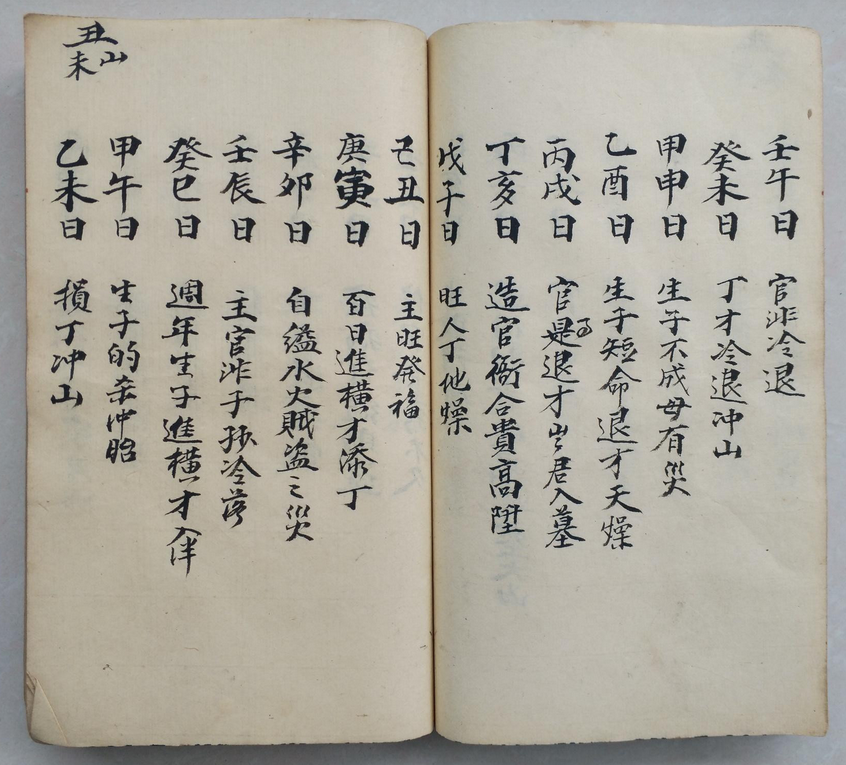 壬午日 官非冷退
癸未日 丁才冷退冲山
甲申日 生子不成母有災
乙酉日 生子短命退才天燥
丙戌日 官是退才山君入墓
丁亥日 造官衙合貴高陞
戊子日 旺人丁地燥
己丑日 主旺発福
庚寅日 百日進横才添丁
辛卯日 自缢水火賊盗之災
壬辰日 主官非子孫冷落
癸巳日 週年生子進横才入
甲午日 生子的冲胎
乙未日 損丁冲山
丑未山